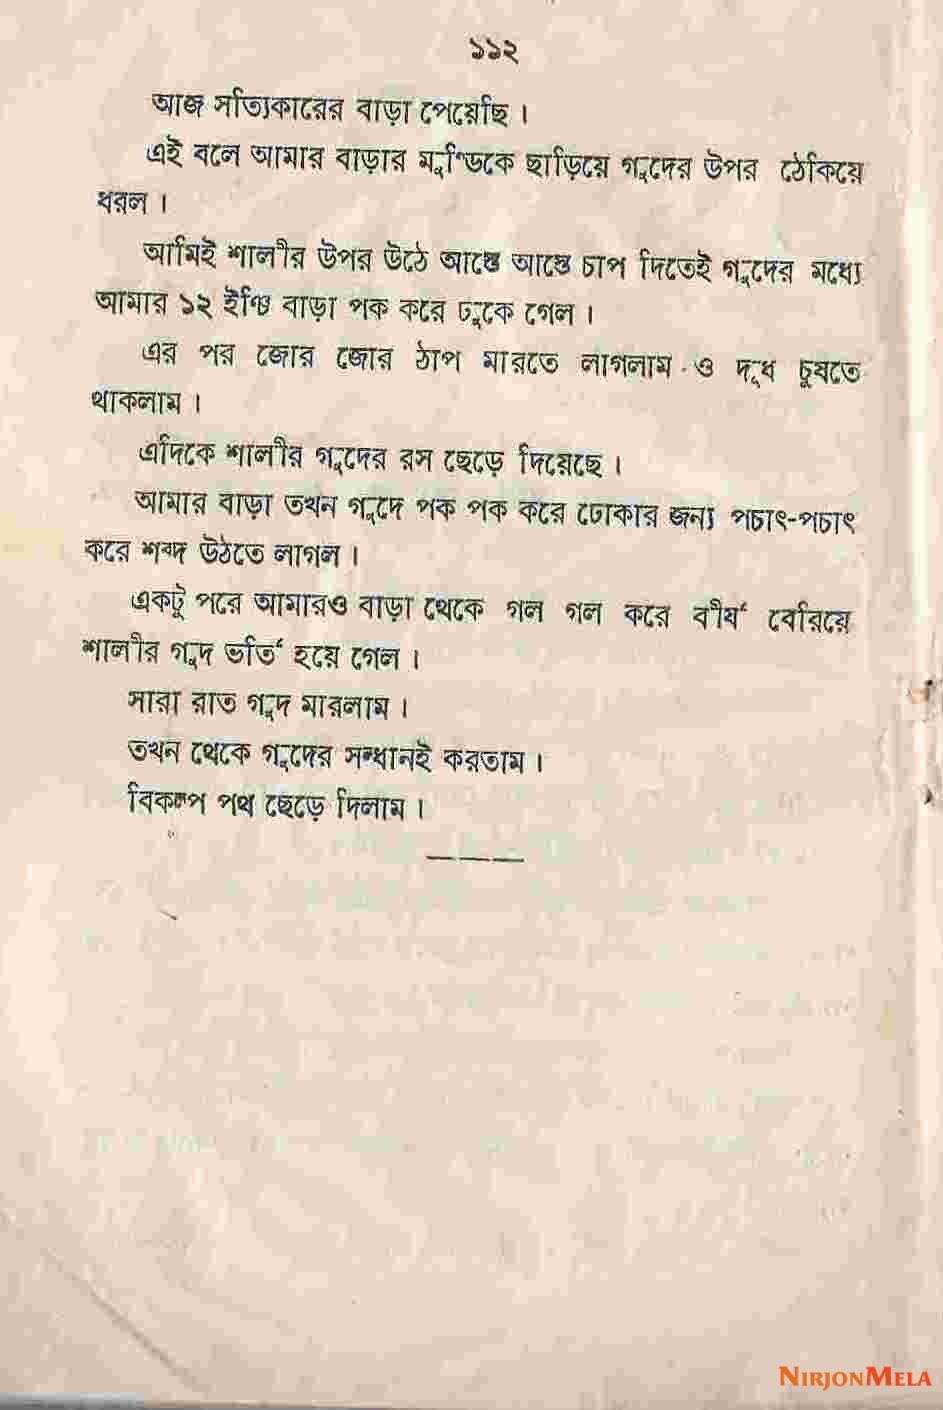 ১১২
আজ সত্যিকারের বাড়া পেয়েছি ।
এই বলে আমার বাড়ার মুণ্ডিকে ছাড়িয়ে গুদের উপর ঠেকিয়ে
ধরল ।
আমিই শালীর উপর উঠে আস্তে আস্তে চাপ দিতেই গুদের মধ্যে
আমার ১২ ইঞ্চি বাড়া পক করে ঢুকে গেল ।
এর পর জোর জোর ঠাপ মারতে লাগলাম ও দুধ চুষতে
থাকলাম ।
এদিকে শালীর গুদের রস ছেড়ে দিয়েছে ।
আমার বাড়া তখন গুদে পক পক করে ঢোকার জন্য পচাৎ-পচাৎ
করে শব্দ উঠতে লাগল ।
একটু পরে আমারও বাড়া থেকে গল গল করে বীর্য বেরিয়ে
শালীর গুদ ভর্তি হয়ে গেল ।
সারা রাত গুদ মারলাম ।
তখন থেকে গুদের সন্ধানই করতাম ।
বিকল্প পথ ছেড়ে দিলাম ।
NIRJONMELA